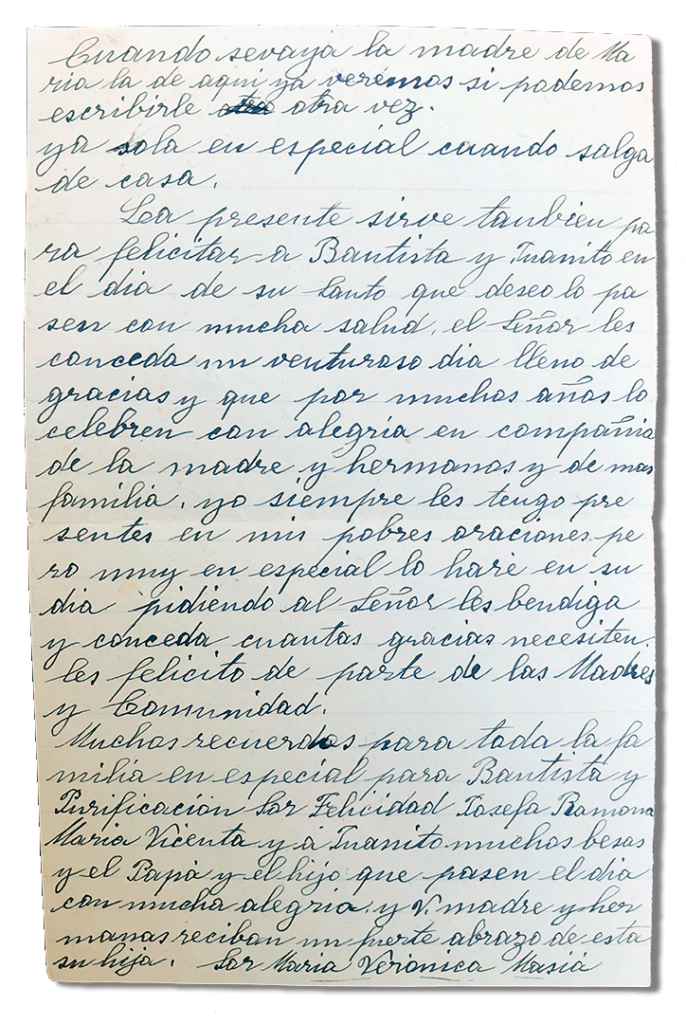 Cuando sevaya la madre de Ma
ria la de aqui ya veremos si podemos
escribirle otra vez.
ya sola en especial cuando salga
de casa.
La presente sirve tanbien pa
ra felicitar a Bautista y Juanito en
el dia de su Santo que deseo lo pa
sen con mucha salud, el Señor les
conceda un venturoso dia lleno de
gracias y que por muchos años lo
celebren con alegria en compañia
de la madre y hermanas y de mas
familia, yo siempre les tengo pre
sentes en mis pobres oraciones pe
ro muy en especial lo haré en su
dia pidiendo al Señor les bendiga
y conceda cuantas gracias necesiten.
les felicito de parte de las Madres
y Comunidad.
Muchos recuerdos para toda la fa
milia en especial para Bautista y
Purificación Sor Felicidad Josefa Ramona
Maria Vicenta y á Juanito muchos besos
y el Papá y el hijo que pasen el dia
con mucha alegria y V. madre y her
manas reciban un fuerte abrazo de esta
su hija. Sor Maria Verónica Masiá